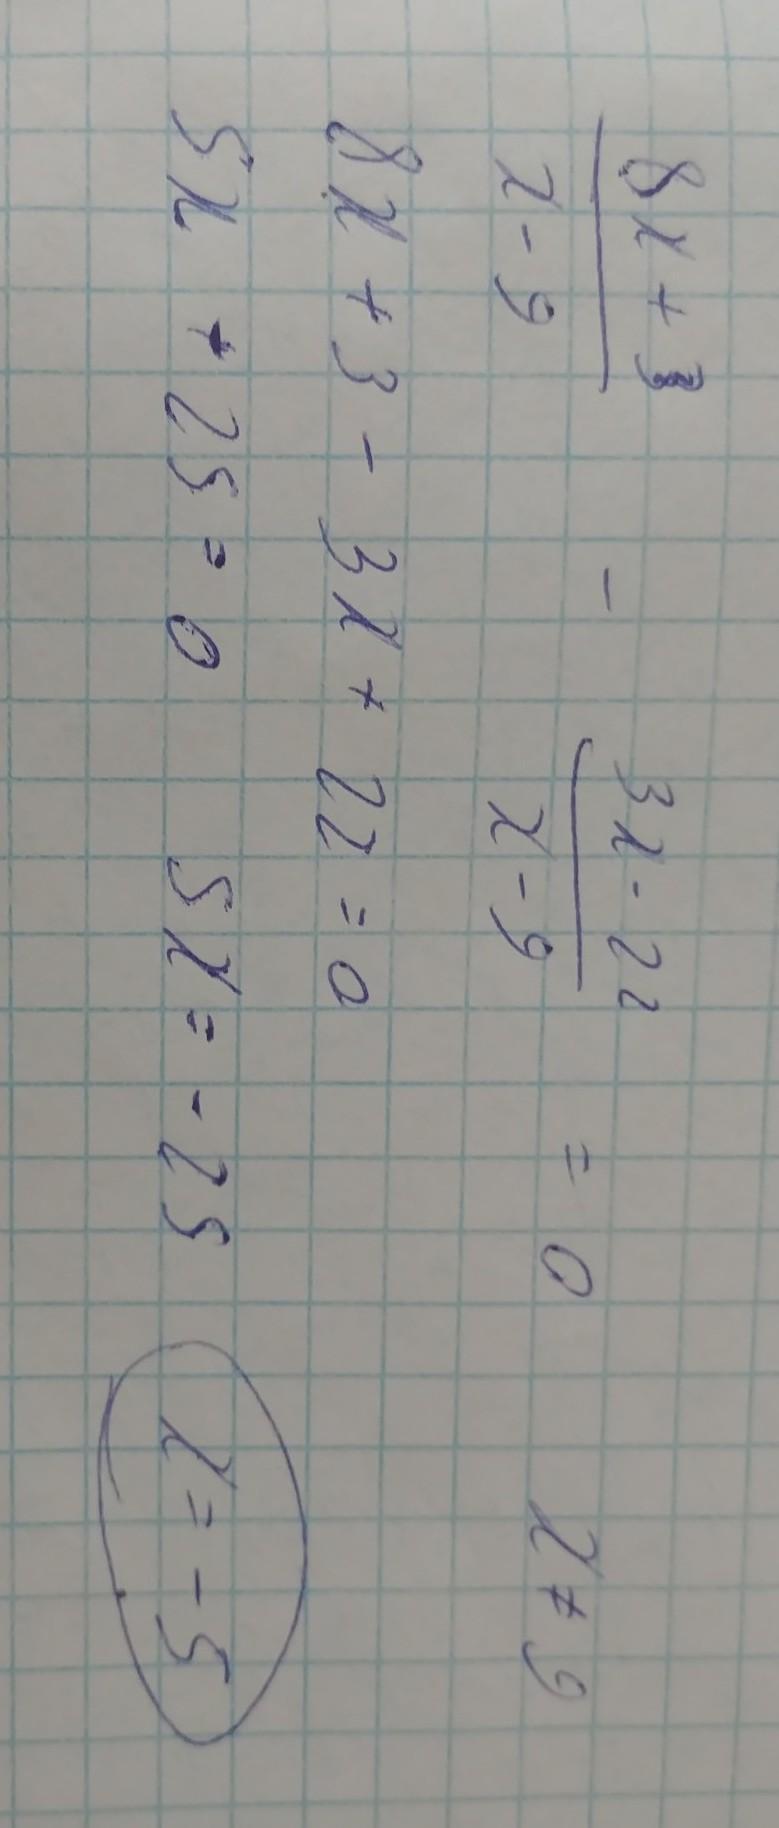 8x+3 / x-9 - 3x-22 / x-9 = 0 x≠9
8x+3-3x+22=0
5x+25=0 5x=-25 x=-5